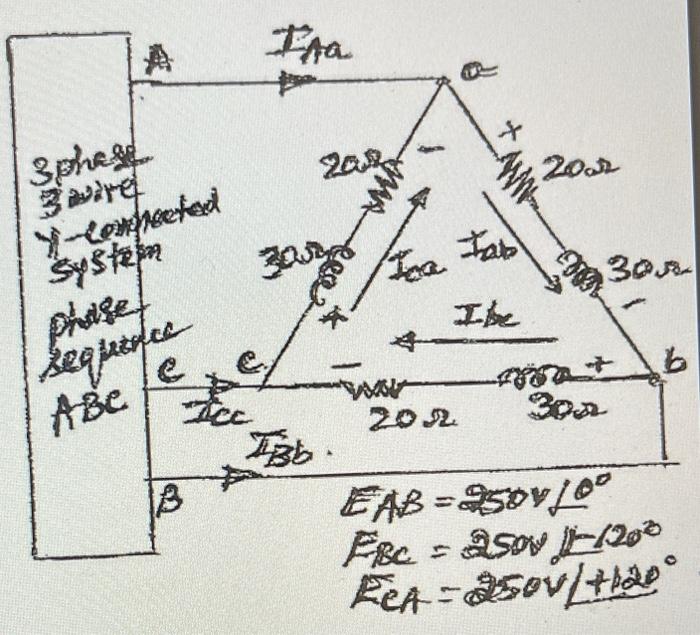 I_Aa
A
a
3 phase
3 wire
Y-connected
system
phase
sequence
ABC
20Ω
-
+
20Ω
30Ω
I_ca
I_ab
30Ω
+
-
I_bc
C
c
-
+
b
I_Cc
20Ω
30Ω
I_Bb
B
E_AB = 250V∠0°
E_BC = 250V∠-120°
E_CA = 250V∠+120°